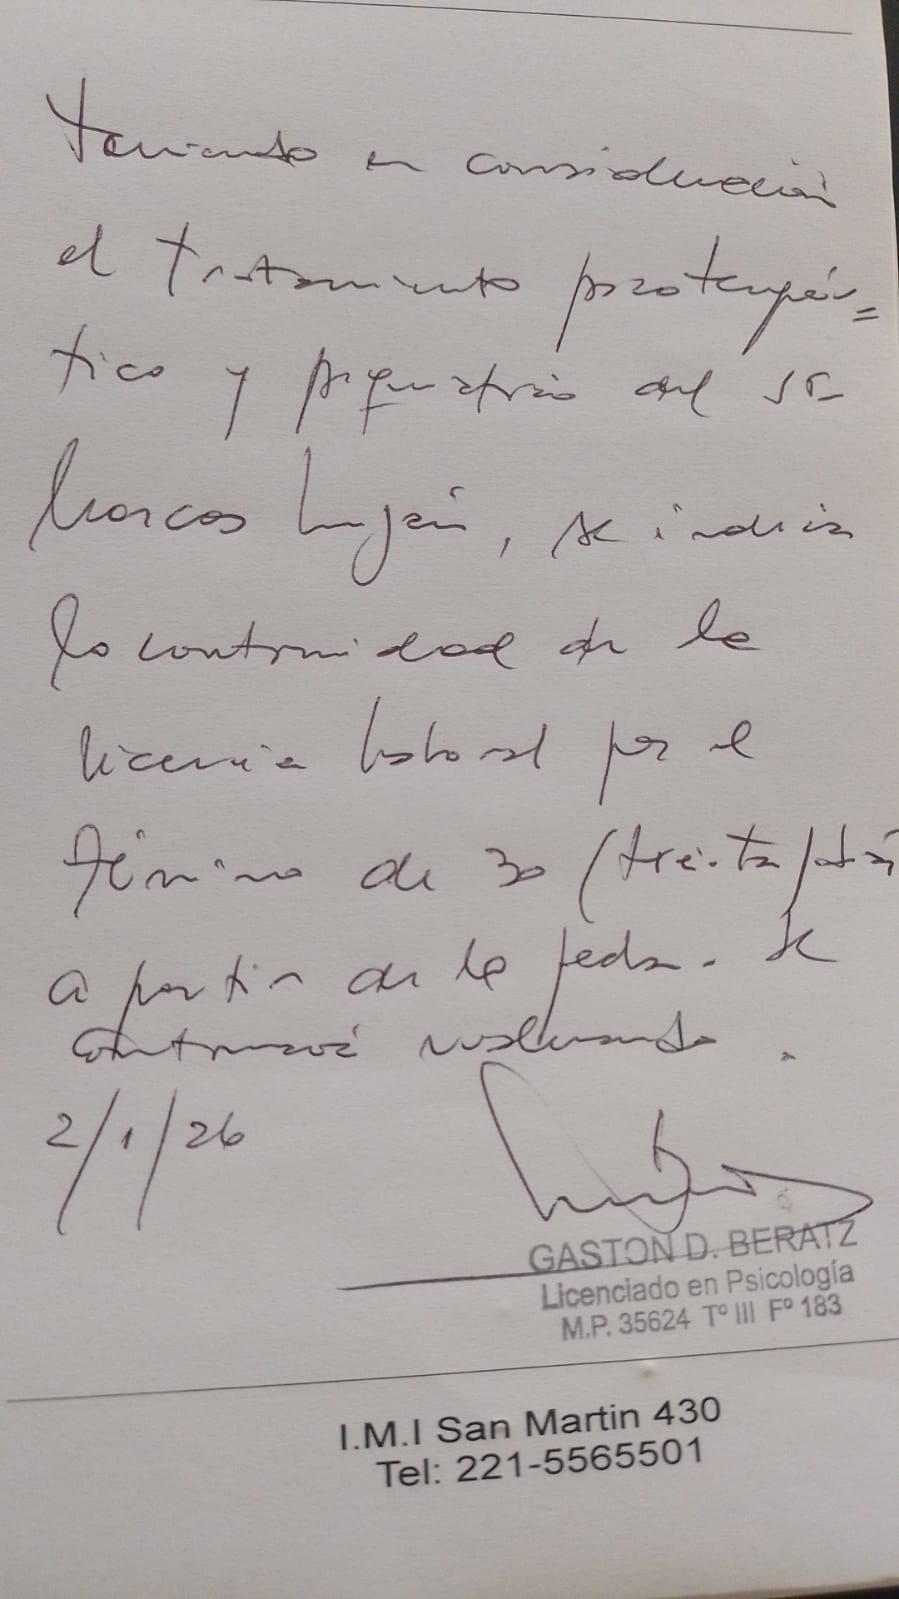 Teniendo en consideración
el tratamiento psicoterapéu=
tico y psiquiátrico del Sr
Marcos Luján, se indica
la continuidad de la
licencia laboral por el
término de 30 (treinta) días
a partir de la fecha. Se
continuará evaluando.
2/1/26
GASTON D. BERATZ
Licenciado en Psicología
M.P. 35624 Tº III Fº 183
I.M.I San Martin 430
Tel: 221-5565501